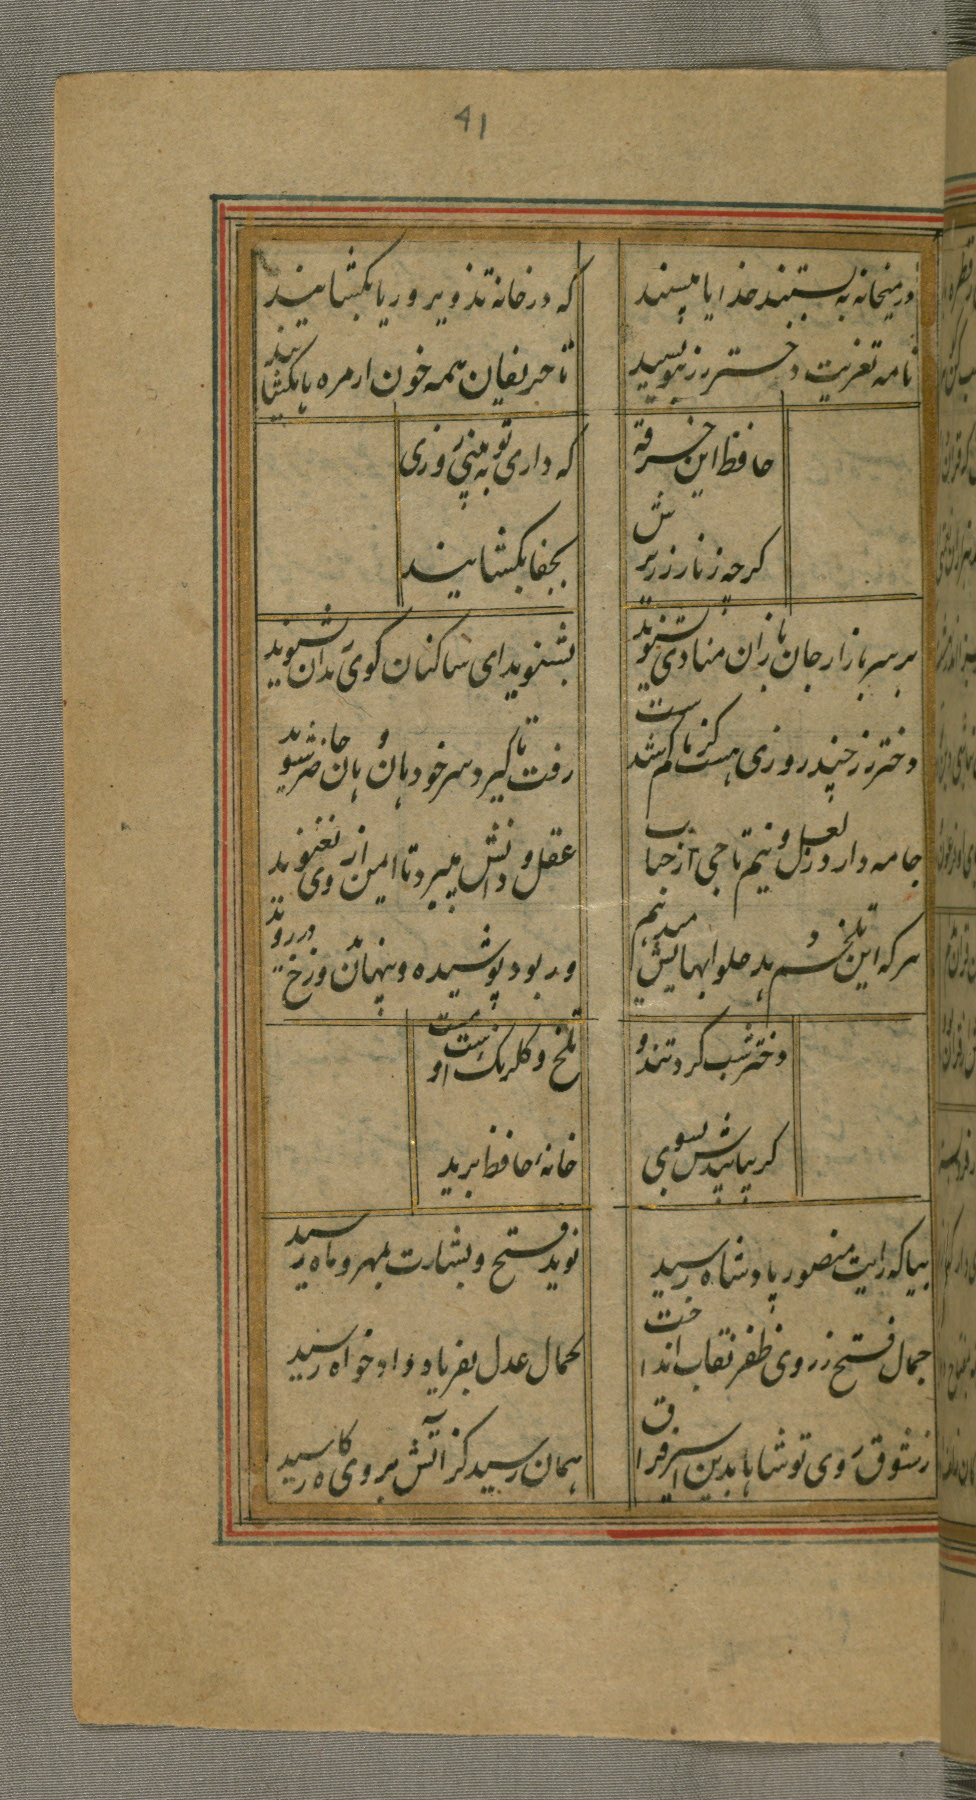 41
در میخانه به بستند خدایا مپسند
که در خانه تذویر و ریا بکشایند
نامه تعزیت دختر رز بنویسید
تا حریفان همه خون از مژه‌ها بکشایند
حافظ این خرقه که داری تو به بینی روزی
که چه زنار ز زیرش بجفا بکشایند
بر سر بازار جان بازان منادی بشنوید
بشنوید ای ساکنان کوی رندان بشنوید
دختر رز چند روزی هست کز ما کم شدست
رفت تا کیرد سر خود هان و هان حاضر شوید
جامه دارد ز لعل و نیم تاجی از حباب
عقل و دانش میبرد تا ایمن از وی نغنوید
هر که این تلخم دهد حلوا بهایش میدهم
ور بود پوشیده و پنهان دوزخ در روید
دختر شب کرد تند و تلخ و کلرنکست و مست
کر بیابیدش بسوی خانه حافظ برید
بیا که رایت منصور پادشاه رسید
نوید فتح و بشارت بمهر و ماه رسید
جمال فتح ز روی ظفر نقاب انداخت
کمال عدل بفریاد دادخواه رسید
ز شوق روی تو شاها بدین اسیر فراق
همان رسید کز آتش بروی کاه رسید